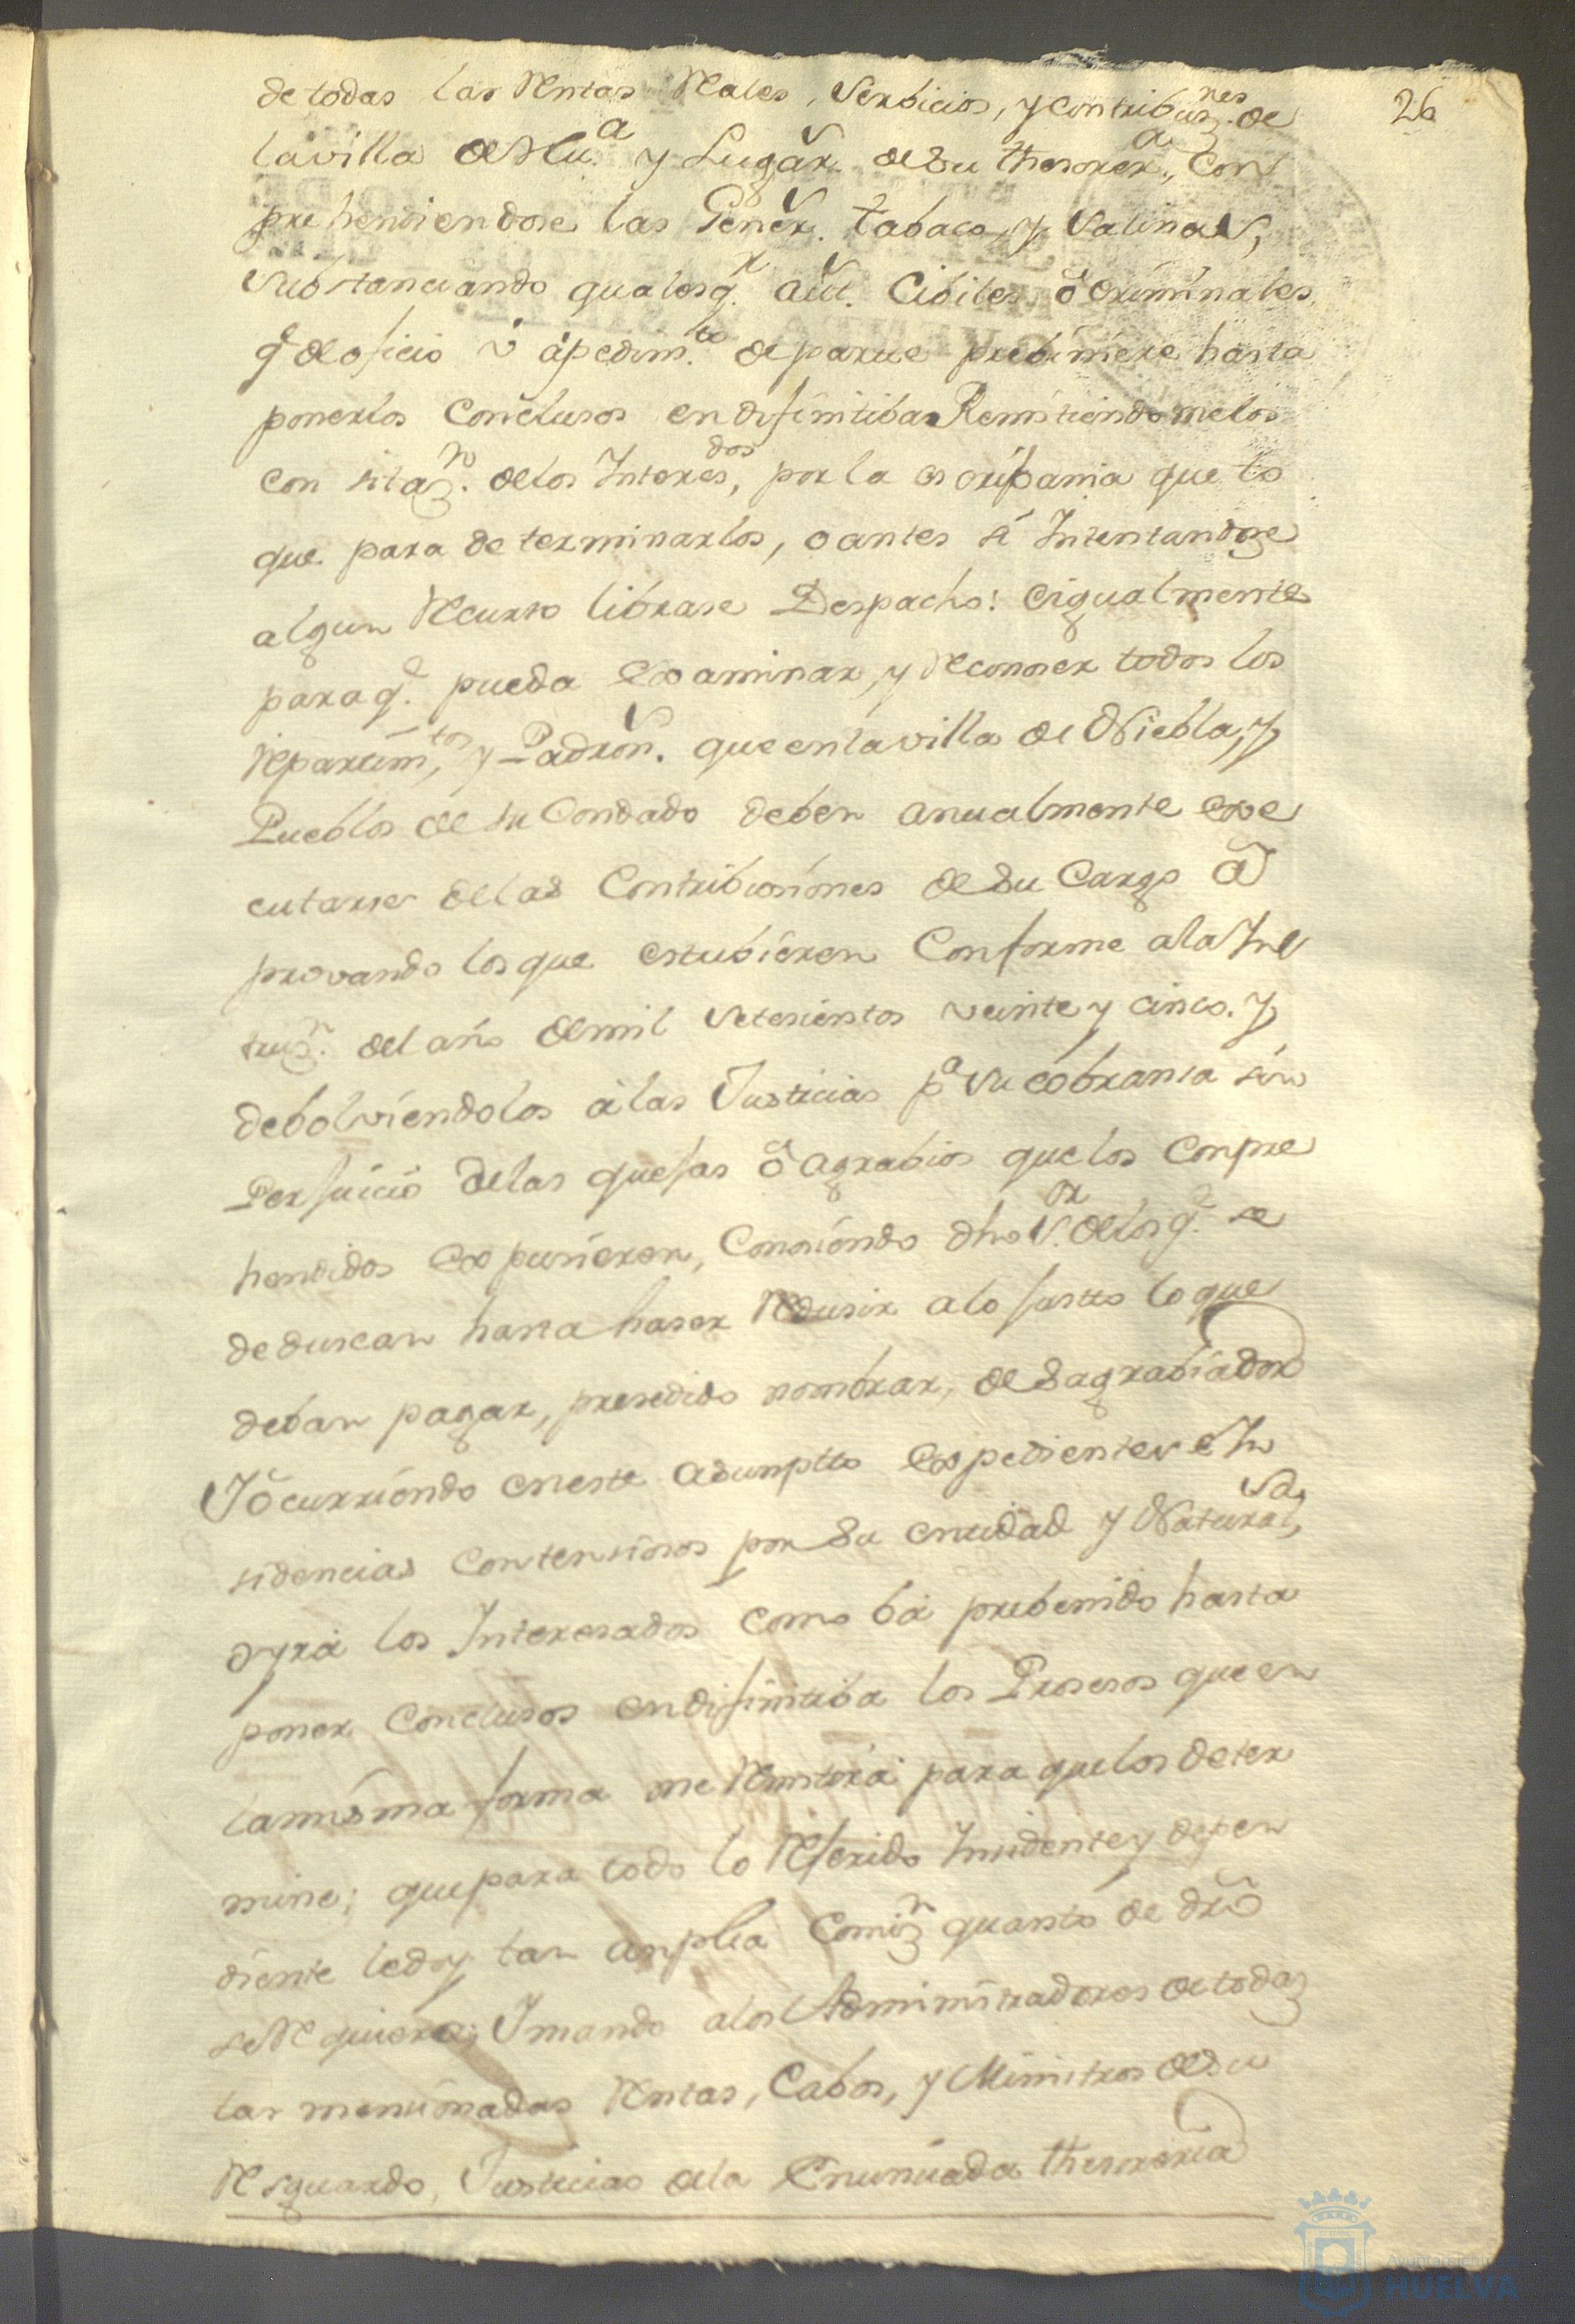 26
de todas las Rentas Reales, Serbicios, y contribuz.nes de
la villa de Hu.a y Lugar.s de su thesorer.a, Con
prehendiendose las Gener.s tabaco, y Salinas,
Substanciando qualesq.r aut.s Cibiles ô Criminales
q.e de oficio ù à pedim.to de parte prebiniere hasta
ponerlos Conclusos en difinitiba Remitiendomelos
con sitaz.n de los Interesdos, por la escribania que to
que para determinarlos, o antes si Intentandose
algun Recurso librase Despacho: e igualmente
para q.e pueda examinar, y Reconoser todos los
Repartim.tos, y Padron.s que en la villa de Niebla, y
Pueblos de su Condado deben anualmente exe
cutarse de las Contribusiones de su Cargo a
provando los que estubieren Conforme a la Ins
truz.n del año de mil setesientos veinte y cinco. Y
debolviendolos à las Justicias p.a su cobransa sin
Perjuicio de las quejas ô agrabios que los Conpre
hendidos expusieren, Conosiendo dho S.or de los q.e se
deduscan hasta haser Redusir a lo justto lo que
deban pagar, presedido nombrar, desagrabiador
Y ocurriendo en este asumptto expedientes e In
sidencias Contensiosos por su entidad y Natural.sa,
oyrà los Interesados como bà prebenido hasta
poner Conclusos en difinitiba los Prosesos que en
la misma forma me Remitirà para que los deter
mine; que para todo lo Referido Insidente y depen
diente le doy tan anplia Comiz.n quanto de dro
se Requiere; Y mando a los Administradores de todas
las mensionadas Rentas, Cabos, y Ministros de su
Resguardo, Justicias de la Enunsiada thesoreria
Ayuntamiento de
HUELVA